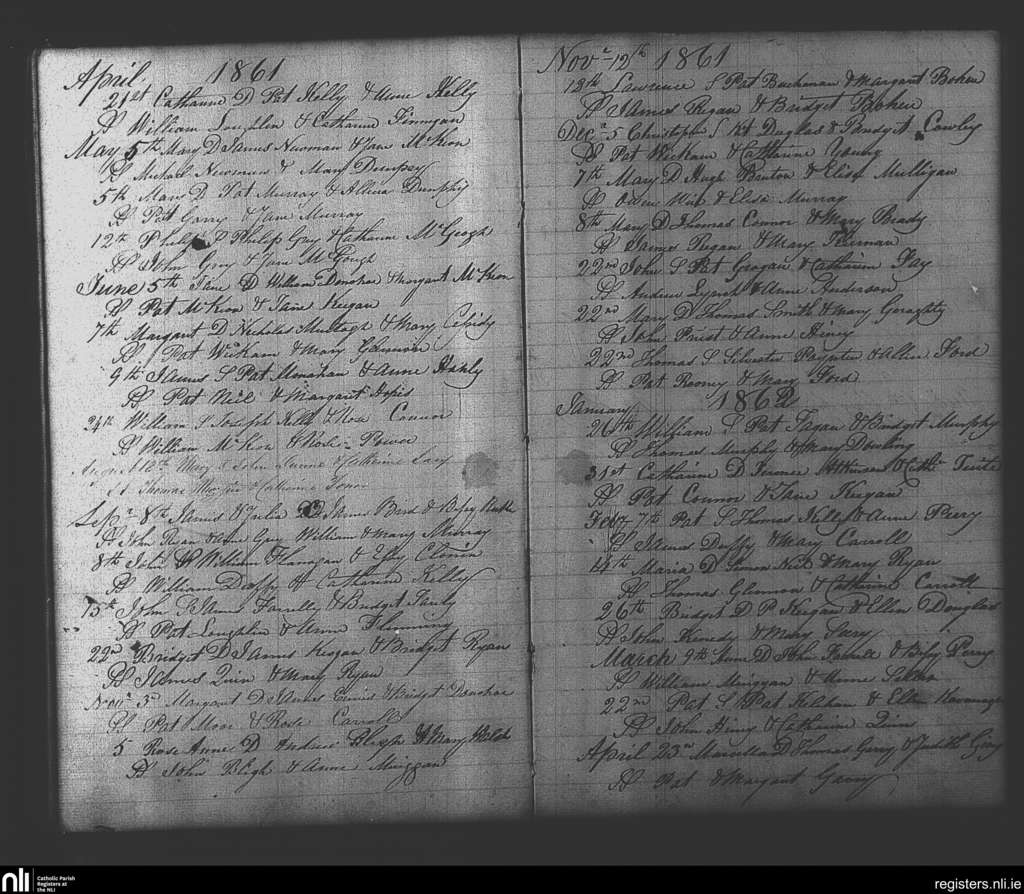 April 1861
21st Catharine D Pat Kelly & Anne Kelly
SP William Loughlin & Catharine Finnegan
May 5th Mary D James Newman & Jane McKeon
SP Michael Newman & Mary Dempsey
5th Mary D Pat Murray & Alicia Dunphy
SP Pat Garry & Jane Murray
12th Philip S Philip Gray & Catharine McGeogh
SP John Gray & Jane McGough
June 5th Jane D William Donohoe & Margaret McKeon
SP Pat McKeon & Jane Keegan
7th Margaret D Nicholas Murtagh & Mary
SP Pat Wickam & Mary Glennon
9th James S Pat Monahan & Anne Hanly
SP Pat Neil & Margaret
24th William S Joseph Kelly & Rose Connor
SP William McKeon & Rose Power
August Mary D John & Catherine
SP Thomas & Catherine
Sepr 8th James & Julia James Bird & Betsy
SP John Ryan & Anne Gray William & Mary Murray
8th John S William Flanagan & Cloosin
SP William Duffy & Catharine Kelly
15th John S James Farrelly & Bridget
SP Pat Loughlin & Anne Flemming
22nd Bridget D James Keegan & Bridget Ryan
SP James Quin & Mary Ryan
Novr 3rd Margaret D James Ennis & Bridget Donohoe
SP Pat Moor & Rose Carroll
5 Rose Anne D Andrew & Mary Welsh
SP John Bligh & Anne Muiggan
Novr 12th 1861
12th Lawrence S Pat Buchanan & Margaret Bohen
SP James Regan & Bridget Bohen
Decr 5 Christopher S Kt Duglas & Bridget Cowley
SP Pat Wickam & Catharine Young
7th Mary D Hugh Bruton & Elisa Mulligan
SP Owen Weir & Elisa Murray
8th Mary D Thomas Connor & Mary Brady
SP James Regan & Mary Kiernan
22nd John S Pat Geogan & Catharine Fay
SP Andrew Lynch & Anne Anderson
22nd Mary D Thomas Smith & Mary Geraghty
SP John Priest & Anne Hiney
22nd Thomas S Silvester & Allice Ford
SP Pat Rooney & Mary Ford
January 1862
26th William S Pat Fagan & Bridget Murphy
SP Thomas Murphy & Mary Dowling
31st Catharine D Atkinson & Cathn Tuite
SP Pat Connor & Jane Keegan
Feby 7th Pat S Thomas Kelly & Anne Peery
SP James Duffy & Mary Carroll
14th Maria D Simon & Mary Ryan
SP Thomas Glennon & Catherine Carroll
26th Bridget D P Keegan & Ellen Douglas
SP John Kenedy & Mary
March 9th Anne D John & Betsy Perry
SP William Muiggan & Anne
22nd Pat S Pat Keleham & Ellen Kavanagh
SP John Hiney & Catharine Quin
April 23rd Marcella D Thomas Garry & Judith Gray
SP Pat & Margaret Garry
nli
Catholic Parish
Registers at
the NLI
registers.nli.ie